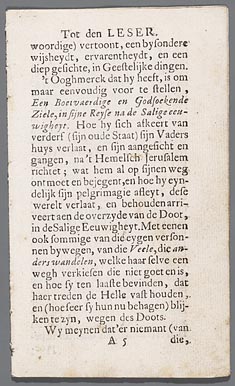 Tot den LESER.
woordige) vertoont, een bysondere
wijsheydt, ervarentheydt, en een
diep gesichte, in Geestelijke dingen.
't Ooghmerck dat hy heeft, is om
maar eenvoudig voor te stellen,
Een Boetvaerdige en Godsoekende
Ziele, in sijne Reyse na de Salige eeu-
wigheyt. Hoe hy sich afkeert van
verderf (sijn oude Staat) sijn Vaders
huys verlaat, en sijn aangesicht en
gangen, na 't Hemelsch Jerusalem
richtet; wat hem al op sijnen weg
ontmoet en bejegent, en hoe hy eyn-
delijk sijn pelgrimagie afleyt, dese
werelt verlaat, en behouden arri-
veert aen de overzyde van de Doot,
in de Salige Eeuwigheyt. Met eenen
ook sommige van die eygen verson-
nen bywegen, van die Veele, die an-
ders wandelen, welke haar selve een
wegh verkiesen die niet goet en is,
en hoe sy ten laatste bevinden, dat
haer treden de Helle vast houden,
en (hoe seer sy hun nu behagen) blij-
ken te zyn, wegen des Doots.
Wy meynen dat'er niemant (van
A 5 die,